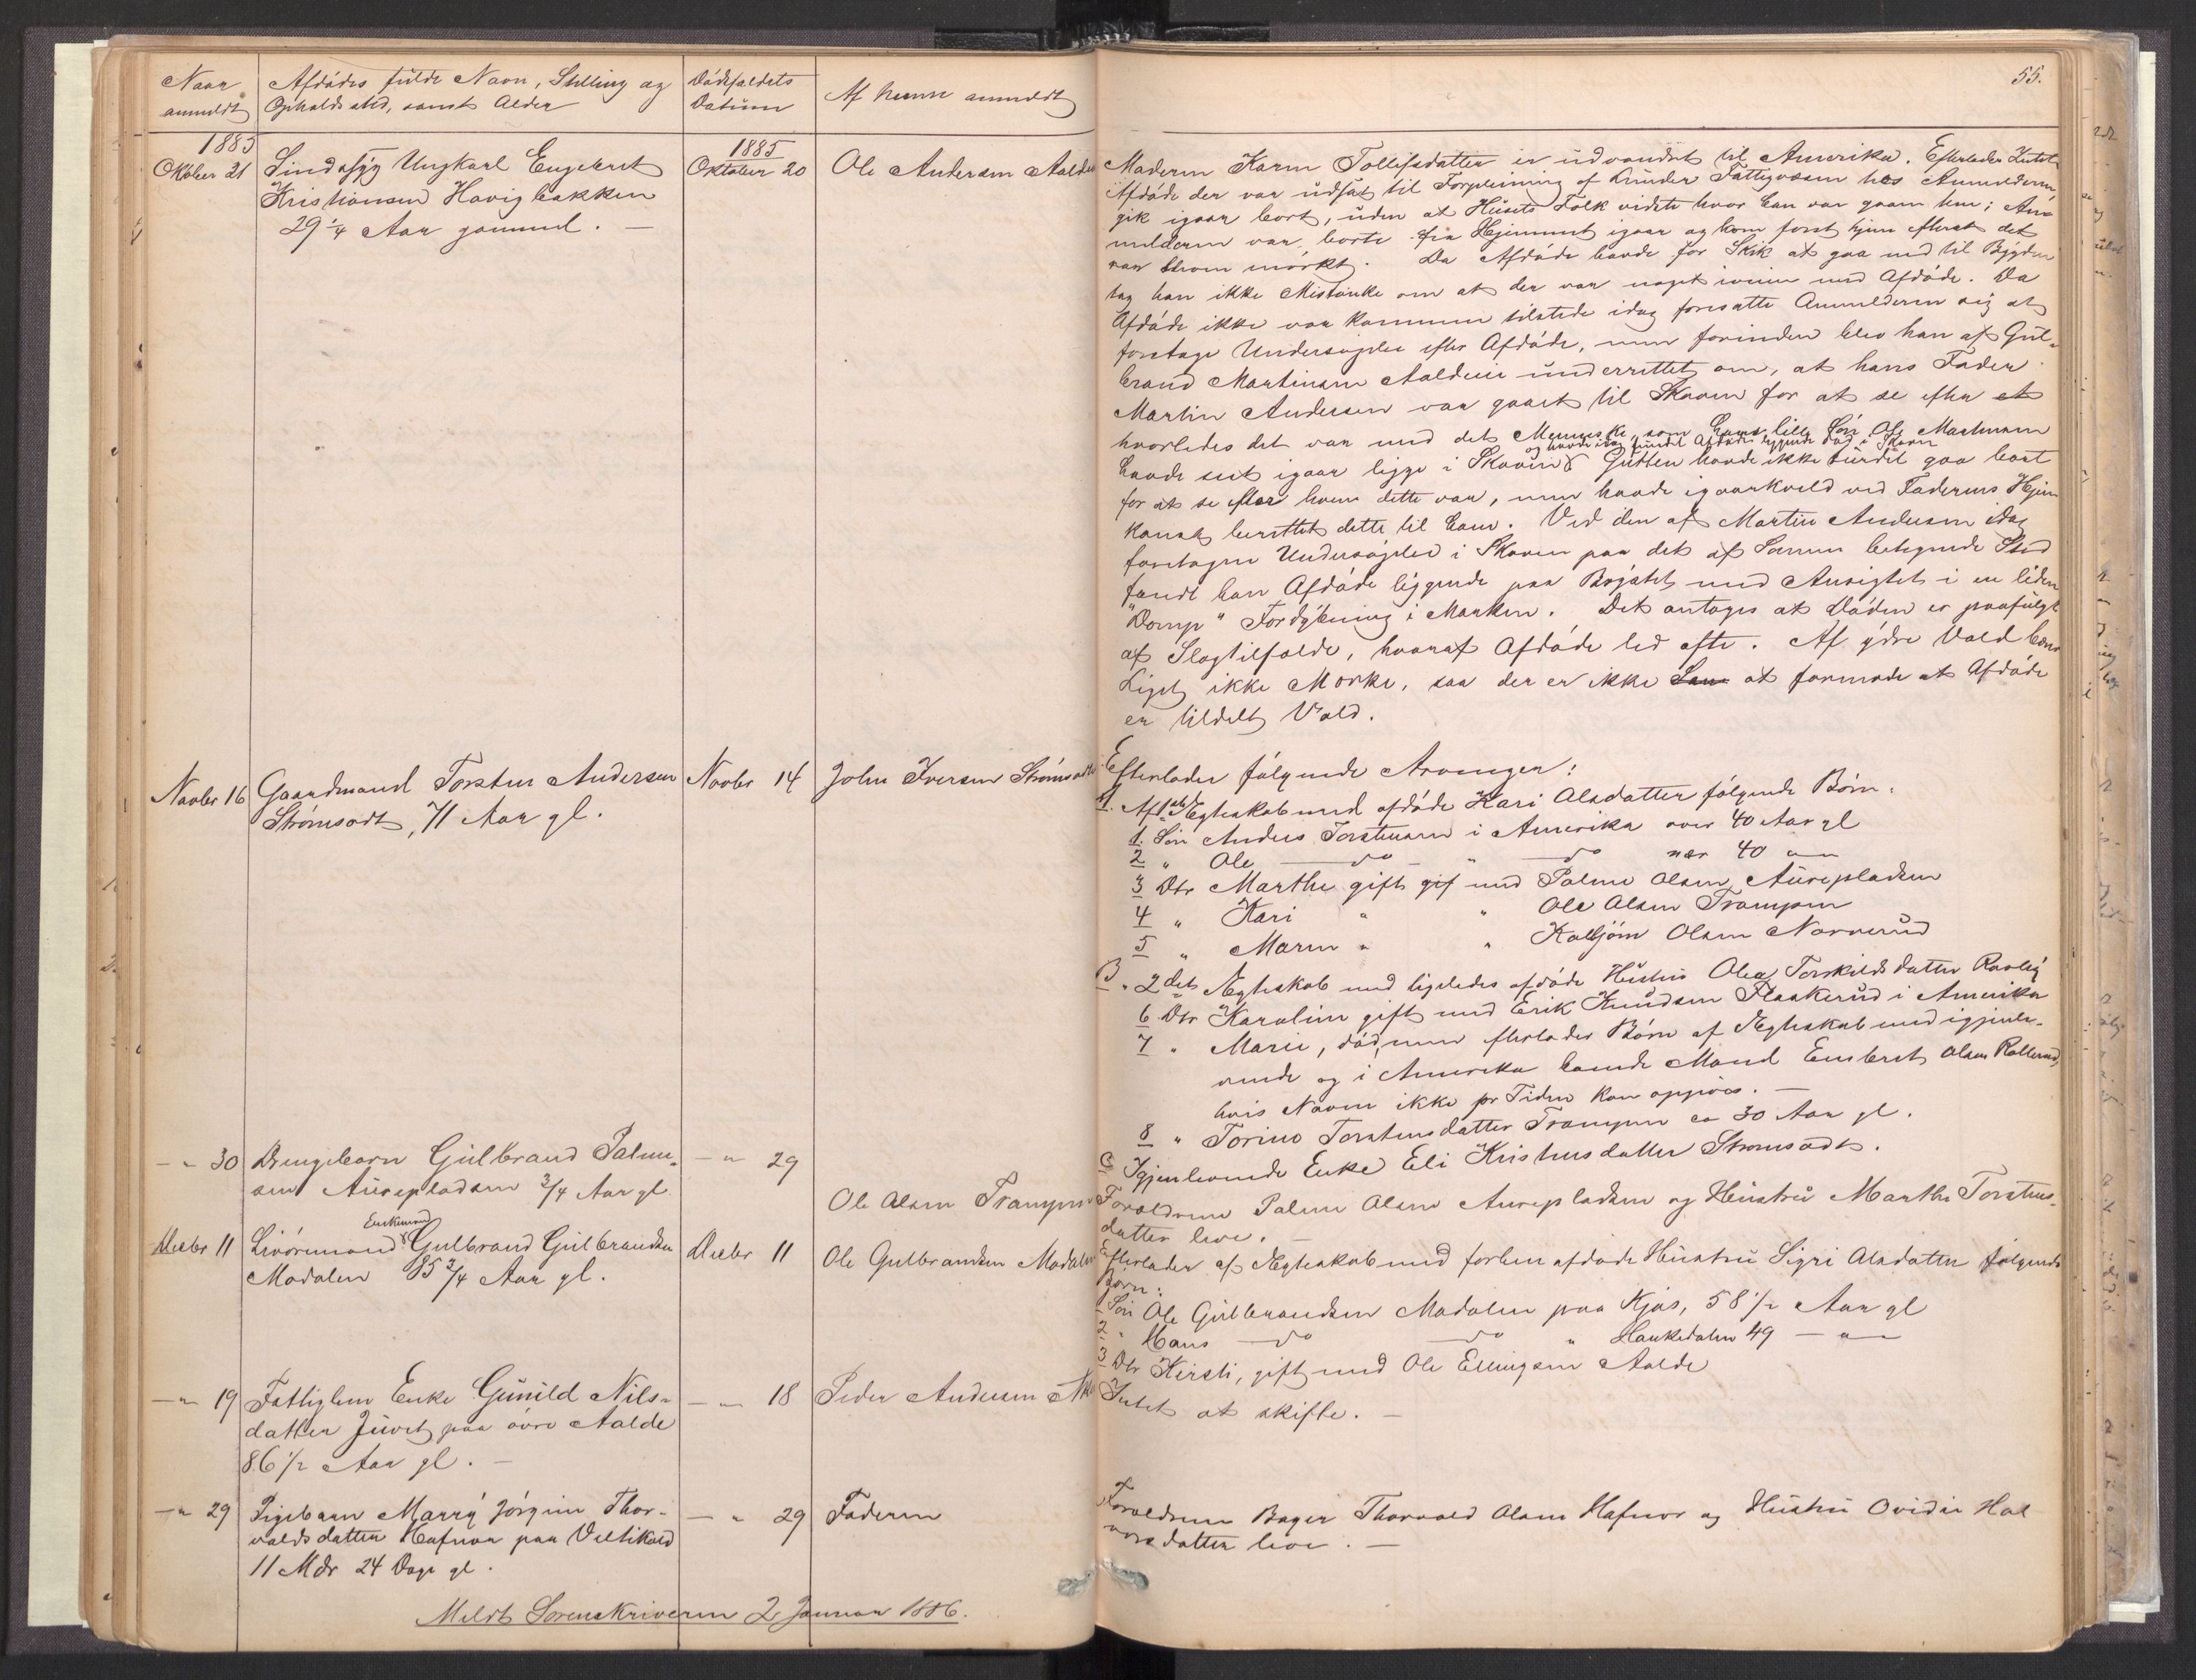 Naar anmeldt
Afdödes fulde Navn, Stilling og Opholdssted, samt Alder
Dödsfaldets Datum
Af hvem anmeldt
55.
1885
Oktober 21
Sindssyg Ungkarl Engebret
Kristiansen Havigbakken
29 1/4 Aar gammel. —
1885
Oktober 20
Ole Andersen Aalde
Moderen Karen Tollefsdatter er udvandret til Amerika. Efterlader Intet.
Afdöde der var udsat til Forpleining af Fattigvæsen hos Anmelderen
gik igaar bort, uden at Husets Folk vidste hvor han var gaaen hen; An-
melderen var borte fra Hjemmet igaar og kom först hjem efterat det
var bleven mörkt. Da Afdöde havde for Skik at gaa ned til Bygden
tog han ikke Mistanke om at der var noget iveien med Afdöde. Da
Afdöde ikke var kommen tilstede idag foresatte Anmelderen sig at
foretage Undersögelse efter Afdöde, men forinden blev han af Gul-
brand Martinsen Aaldeeie underrettet om, at hans Fader
Martin Andersen var gaaet til Skoven for at se efter
hvorledes det var med det Menneske, som hans lille Sön Ole Martinsen
og havde idag fundet Afdöde liggende död i Skoven
havde seet igaar ligge i Skoven Gutten havde ikke turdet gaa bort
for at se efter hvem dette var, men havde igaarkveld ved Faderens Hjem
komst berettet dette til ham. Ved den af Martin Andersen idag
foretagne Undersögelse i Skoven paa det af Sönnen betegnede Sted
fandt han Afdöde liggende paa Brystet med Ansigtet i en liden
"Domp" Fordybning i Marken. Det antages at Döden er paafulgt
af Slagtilfælde, hvoraf Afdöde led ofte. Af ydre Vold bær
Liget ikke Mærke, saa der er ikke at formode at Afdöde
er tildelt Vold.
Novbr 16
Gaardmand Torsten Andersen
Strömsodt, 71 Aar gl.
Novbr 14
John Iversen Strömsodt
Efterlader fölgende Arvinger:
A. Af 1ste Ægteskab med afdöde Kari Olsdatter fölgende Börn:
1. Sön Anders Torstensen i Amerika over 40 Aar gl
2 " Ole — do — " — do nær 40 — " —
3 Dtr Marthe gift gif med Palme Olsen Aurepladsen
4 " Kari " " Ole Olsen Trampen
5 " Maren " " Kolbjörn Olsen Narverud
B. 2det Ægteskab med ligeledes afdöde Hustru Olea Torkildsdatter
6 Dtr Karoline gift med Erik Knudsen Flaskerud i Amerika
7 " Marie, död, men efterlader Börn af Ægteskab med igjenle-
vende og i Amerika boende Mand Embret Olsen Rollerud,
hvis Navne ikke pr Tiden kan opgives. —
8 " Torine Torstensdatter Trampen ca 30 Aar gl.
C Igjenlevende Enke Eli Kristensdatter Strömsodt.
— " 30
Drengebarn Gulbrand Palme-
sen Aurepladsen 3/4 Aar gl
— " 29
Ole Olsen Trampen
Forældrene Palme Olsen Aurepladsen og Hustru Marthe Torstens-
datter leve. —
Decbr 11
Enkemand
Livöremand Gulbrand Gulbrandsen
Modalen 85 3/4 Aar gl.
Decbr 11
Ole Gulbrandsen Modalen
Efterlader af Ægteskab med forhen afdöde Hustru Sigri Olsdatter fölgende
Börn:
1 Sön Ole Gulbrandsen Modalen paa Kjös, 58 1/2 Aar gl
2 " Hans — do — do " Haukedalen 49 — " —
3 Dtr Kirsti, gift med Ole Ellingsen Aalde
— " 19
Fattiglem Enke Gunild Nils-
datter Juvet paa övre Aalde
86 1/2 Aar gl. —
— " 18
Peder Andersen
Intet at skifte. —
— " 29
Pigebarn Marry Jörgine Thor-
valdsdatter Hafnor paa Veltikold
11 Mdr 24 Dage gl.
— " 29
Faderen
Forældrene Bager Thorvald Olsen Hafnor og Hustru Ovidie Hal
vorsdatter leve. —
Meldt Sorenskriveren 2 Januar 1886.